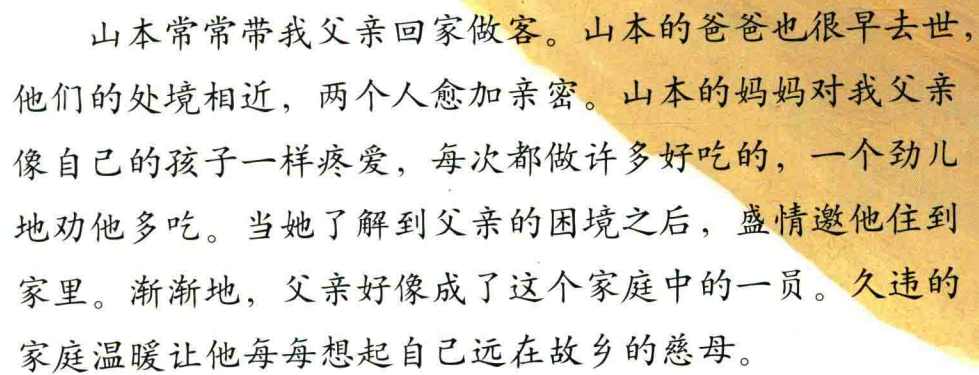 山本常常带我父亲回家做客。山本的爸爸也很早去世，
他们的处境相近，两个人愈加亲密。山本的妈妈对我父亲
像自己的孩子一样疼爱，每次都做许多好吃的，一个劲儿
地劝他多吃。当她了解到父亲的困境之后，盛情邀他住到
家里。渐渐地，父亲好像成了这个家庭中的一员。久违的
家庭温暖让他每每想起自己远在故乡的慈母。